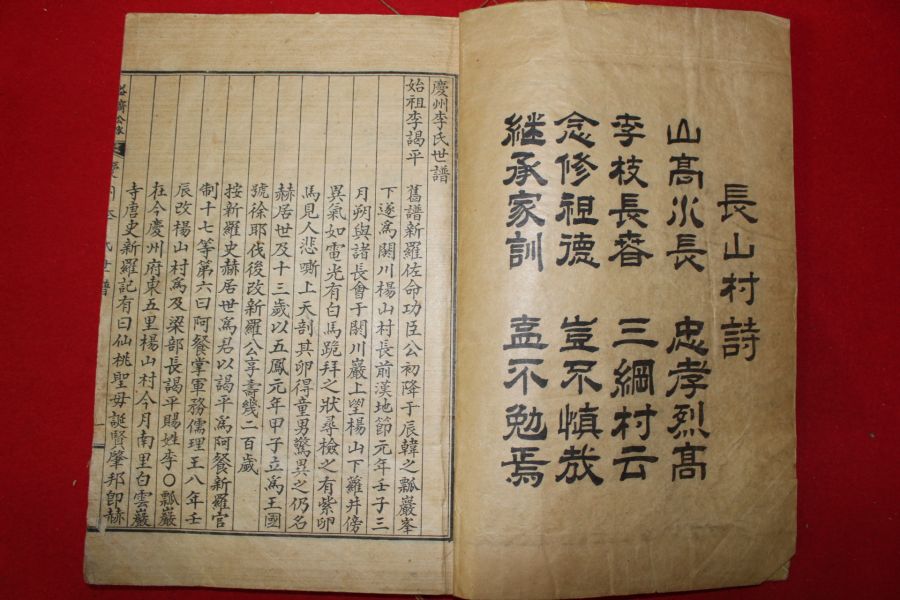 長山村詩
山高水長 忠孝烈高
李枝長春 三綱村云
念修祖德 豈不慎哉
継承家訓 盍不勉焉
慶州李氏世譜
始祖李謁平
舊譜新羅佐命功臣公初降于辰韓之瓢巖峯
下遂爲閼川楊山村長前漢地節元年壬子三
月朔與諸長會于閼川巖上望楊山下蘿井傍
異氣如電光有白馬跪拜之狀尋檢之有紫卵
馬見人悲嘶上天剖其卵得童男驚異之仍名
赫居世及十三歲以五鳳元年甲子立爲王國
號徐耶伐後改新羅公享壽幾二百歲
按新羅史赫居世爲君以謁平爲阿餐新羅官
制十七等第六曰阿餐掌軍務儒理王八年壬
辰改楊山村爲及梁部長謁平賜姓李○瓢巖
在今慶州府東五里楊山村今月南里白雲巖
寺唐史新羅記有曰仙桃聖母誕賢肇邦卽赫
益齋公派
慶州李氏世譜
一